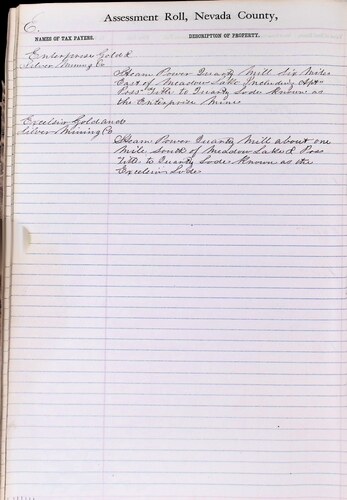 E.
Assessment Roll, Nevada County,
NAMES OF TAX PAYERS.
DESCRIPTION OF PROPERTY.
Enterprise Gold &
Silver Mining Co
Steam Power Quartz Mill Six Miles
East of Meadow Lake Including
Poss Title to Quartz Lode known as
the Enterprise Mine
Excelsior Gold and
Silver Mining Co
Steam Power Quartz Mill about one
Mile South of Meadow Lake & Poss
Title to Quartz Lode known as the
Excelsior Lode